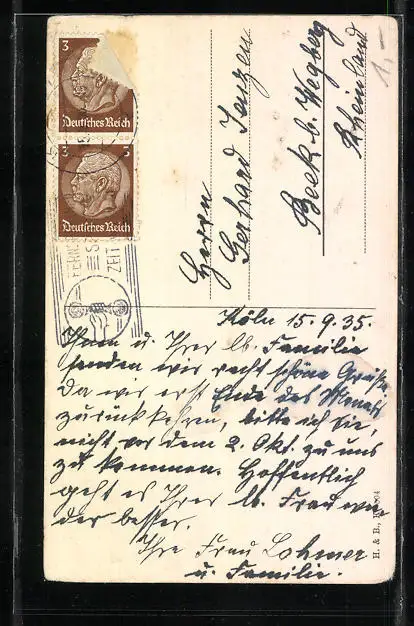 3
Deutsches Reich
3
Deutsches Reich
FERN
S
ZEIT
Herrn
Gerhard Jenzen
Beek b. Wegberg
Rheinland
1,-
Köln 15.9.35.
Ihnen u. Ihrer lb. Familie
senden wir recht schöne Grüße.
Da wir erst Ende des Monats
zurückkehren, bitte ich Sie,
nicht vor dem 2. Okt. zu uns
zu kommen. Hoffentlich
geht es Ihrer lb. Frau wie-
der besser.
Ihre Frau Lohmer
u. Familie.
H. & B., K.